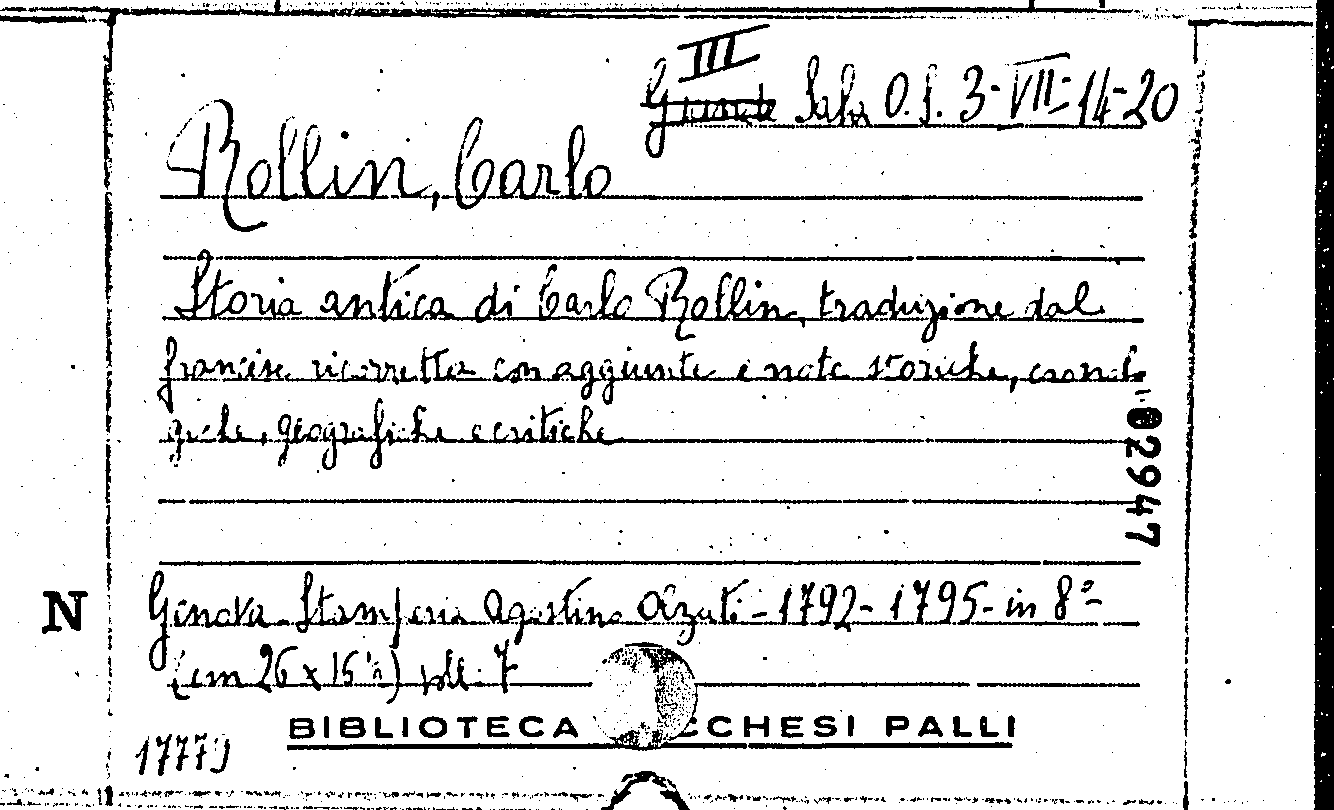 III
Sala O.S. 3-VII-14-20
Rollin, Carlo
Storia antica di Carlo Rollin, traduzione dal
francese ricorretta con aggiunte e note storiche, cronolo
giche, geografiche e critiche
82947
N
Genova - Stamperia Agostino Olzati - 1792 - 1795 - in 8° -
(cm 26 x 15 ½) voll. 7
BIBLIOTECA CCHESI PALLI
17779